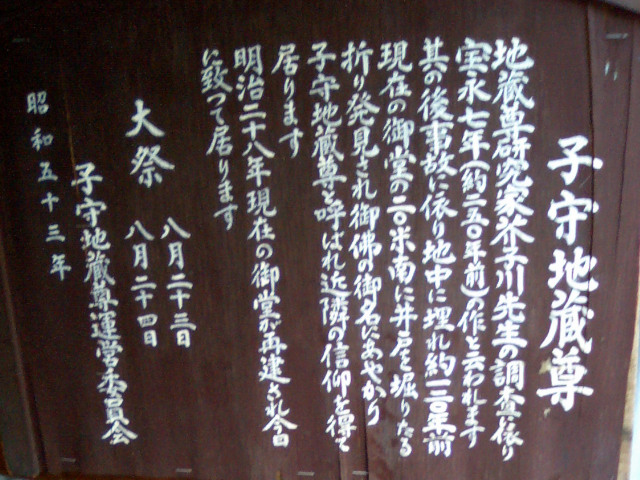 子守地蔵尊
地蔵尊研究家芥子川先生の調査に依り
宝永七年(約二五〇年前)の作と云われます
其の後事故に依り地中に埋れ約一二〇年前
現在の御堂の二〇米南に井戸を堀りたる
折り発見され御佛の御名にあやかり
子守地蔵尊と呼ばれ近隣の信仰を得て
居ります
明治二十八年現在の御堂が再建され今日
に致つて居ります
大祭 八月二十三日
八月二十四日
子守地蔵尊運営委員会
昭和五十三年